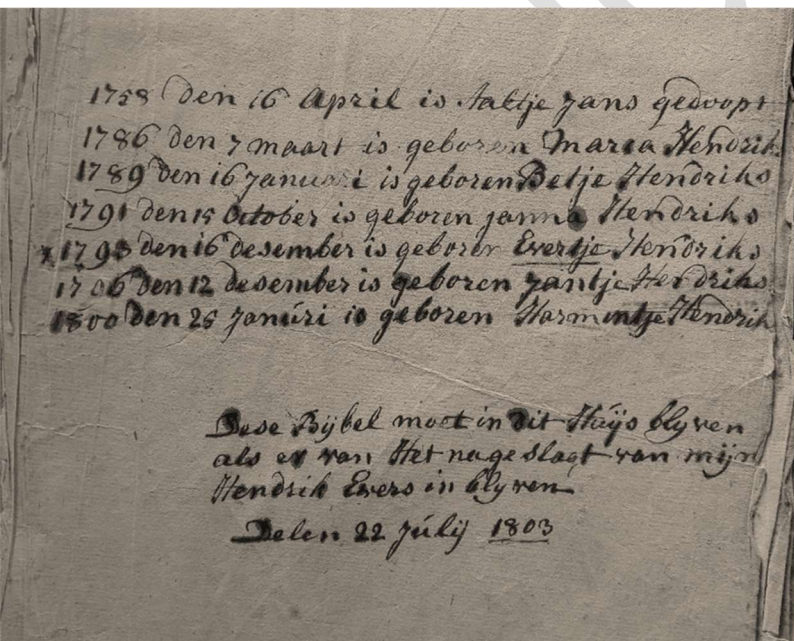 1758 den 16 April is Aaltje Jans gedoopt
1786 den 7 maart is geboren Maria Hendrik
1789 den 16 Januari is geboren Betje Hendriks
1791 den 15 October is geboren janna Hendriks
x 1793 den 16 desember is geboren Evertje Hendriks
den 12 desember is geboren Jantje Hendriks
1800 den 25 Janúri is geboren Harmintje Hendrik
Dese Bijbel moet in dit Húijs blyven
als er van Het nageslagt van mijn
Hendrik Evers in blyven
Delen 22 Júlij 1803